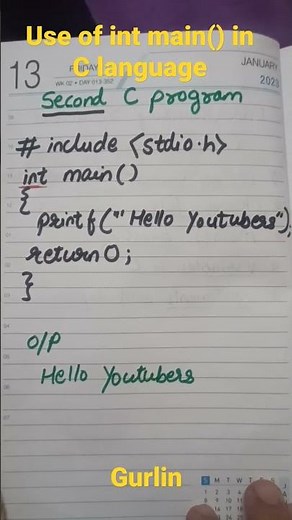 Use of int main() in
C language
13 FRIDAY JANUARY
WK 02 • DAY 013-352 2023
Second C program
# include <stdio.h>
int main()
{
printf("Hello Youtubers");
return 0;
}
O/P
Hello Youtubers
Gurlin
S M T W T